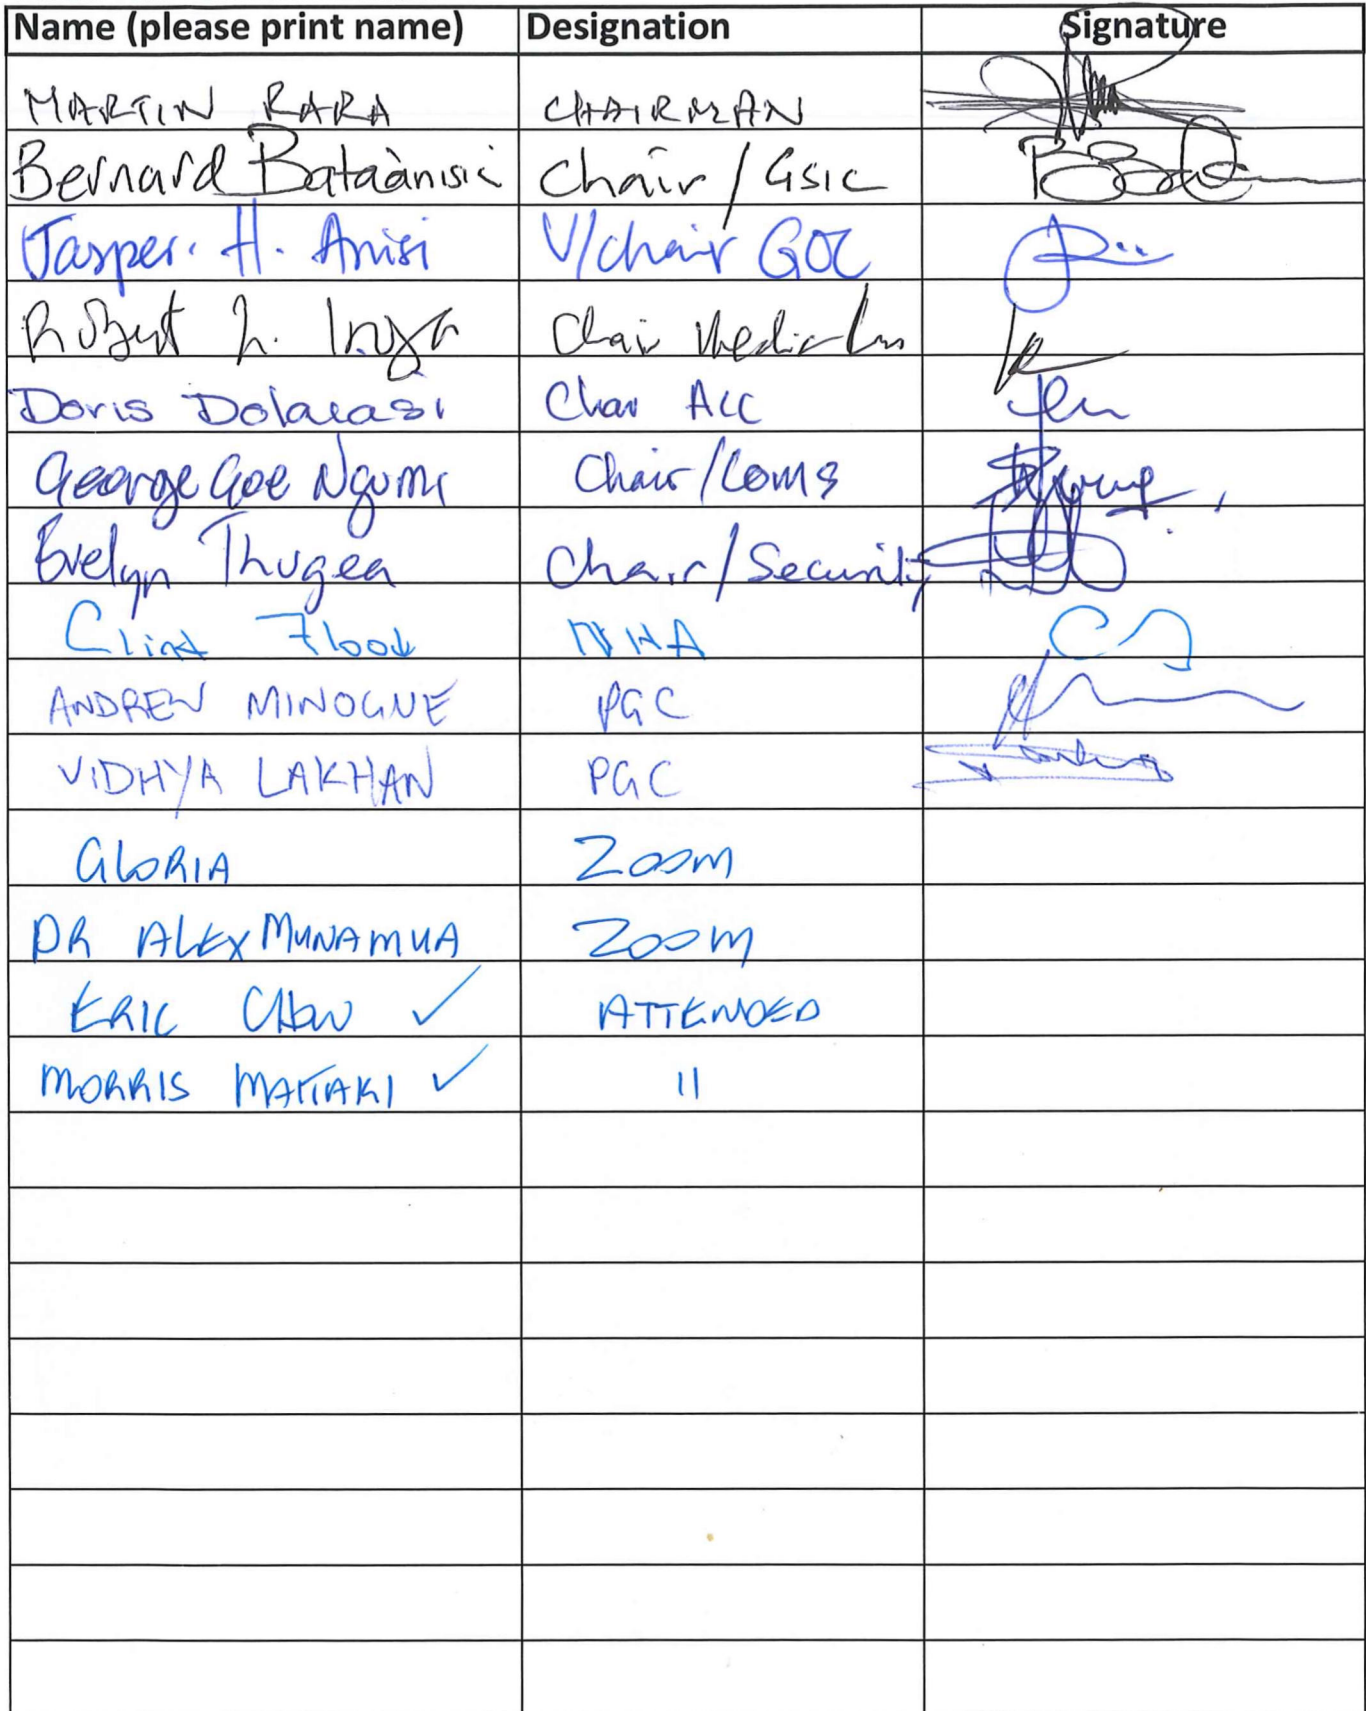 Name (please print name) Designation Signature
MARTIN RARA CHAIRMAN
Bernard Bataànisia Chair / GSIC
Jasper. H. Anisi V/chair GOC
Chair
Doris Dolaiasi Chair ACC
George Goe Ngumi Chair/Coms
Evelyn Thugea Chair/Security
Clint Flood NHA
ANDREW MINOGUE PGC
VIDHYA LAKHAN PGC
GLORIA ZOOM
DR ALEX MUNAMUA ZOOM
ERIC Chow ✓ ATTENDED
MORRIS MATTAKI ✓ 11